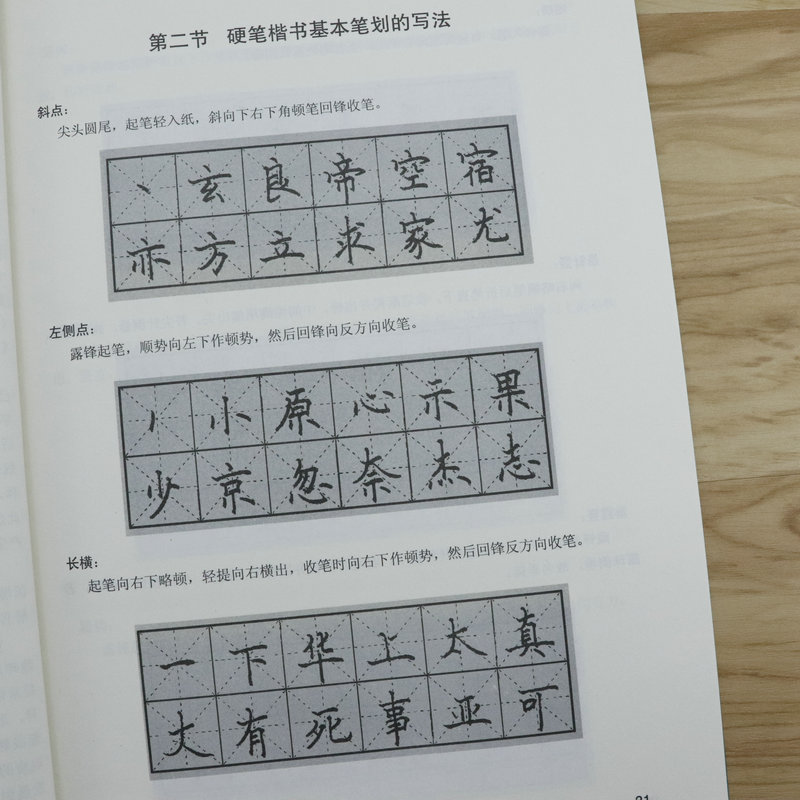 第二节 硬笔楷书基本笔划的写法
斜点：
尖头圆尾，起笔轻入纸，斜向下右下角顿笔回锋收笔。
丶玄良帝空宿
亦方立求家尤
左侧点：
露锋起笔，顺势向左下作顿势，然后回锋向反方向收笔。
丿小原心示果
少京忽奈杰志
长横：
起笔向右下略顿，轻提向右横出，收笔时向右下作顿势，然后回锋反方向收笔。
一下华上太真
大有死事亚可
21